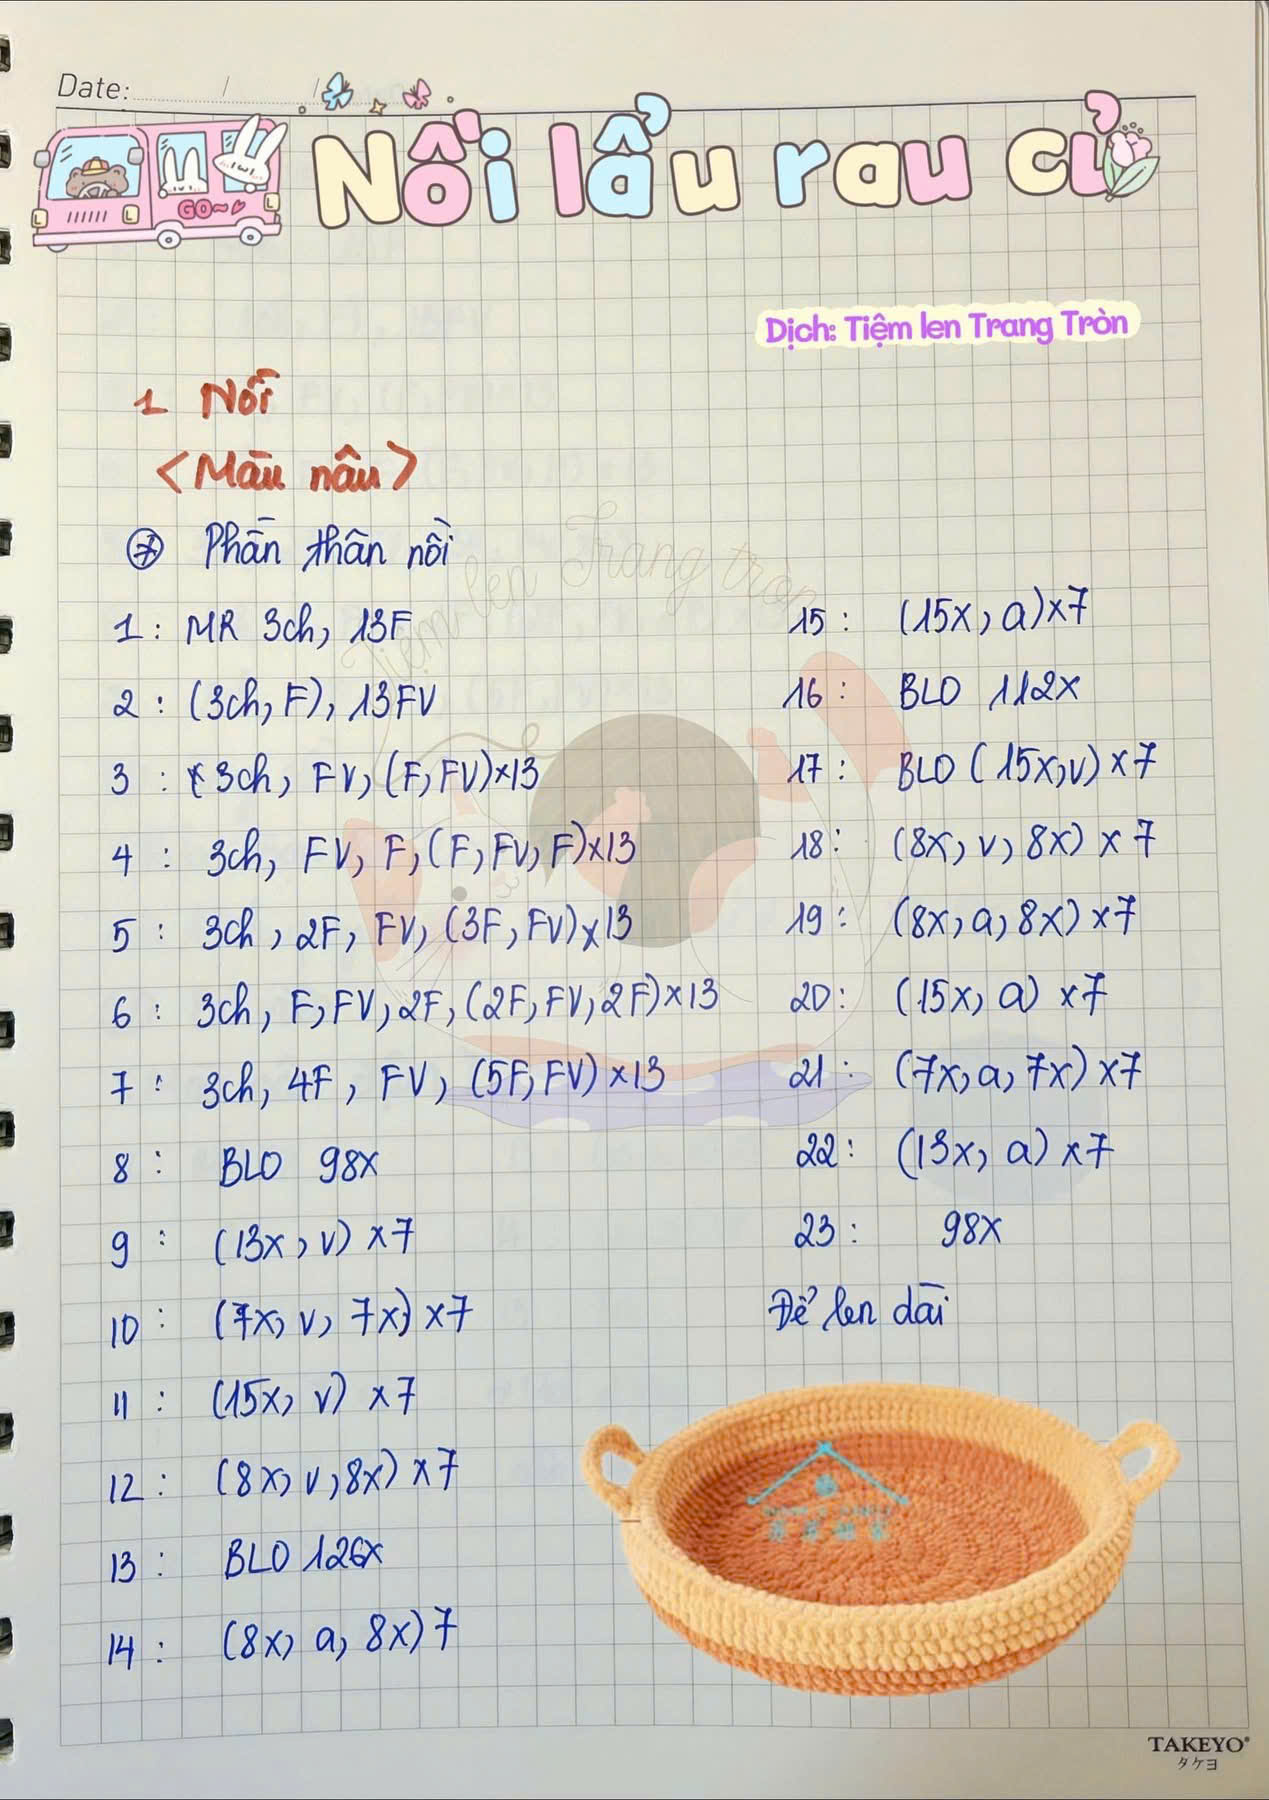 Date: / /
Nồi lẩu rau củ
GO~
Dịch: Tiệm len Trang Tròn
1 Nồi
<Màu nâu>
Phần thân nồi
Tiệm len Trang tròn
1: MR 3ch, 13F
2: (3ch, F), 13FV
3: 3ch, FV, (F, FV)x13
4: 3ch, FV, F, (F, FV, F)x13
5: 3ch, 2F, FV, (3F, FV)x13
6: 3ch, F, FV, 2F, (2F, FV, 2F)x13
7: 3ch, 4F, FV, (5F, FV)x13
8: BLO 98x
9: (13x, v) x7
10: (7x, v, 7x) x7
11: (15x, v) x7
12: (8x, v, 8x) x7
13: BLO 126x
14: (8x, a, 8x) 7
15: (15x, a)x7
16: BLO 112x
17: BLO (15x, v) x7
18: (8x, v, 8x) x7
19: (8x, a, 8x) x7
20: (15x, a) x7
21: (7x, a, 7x) x7
22: (13x, a) x7
23: 98x
Để len dài
TAKEYO®
タケヨ